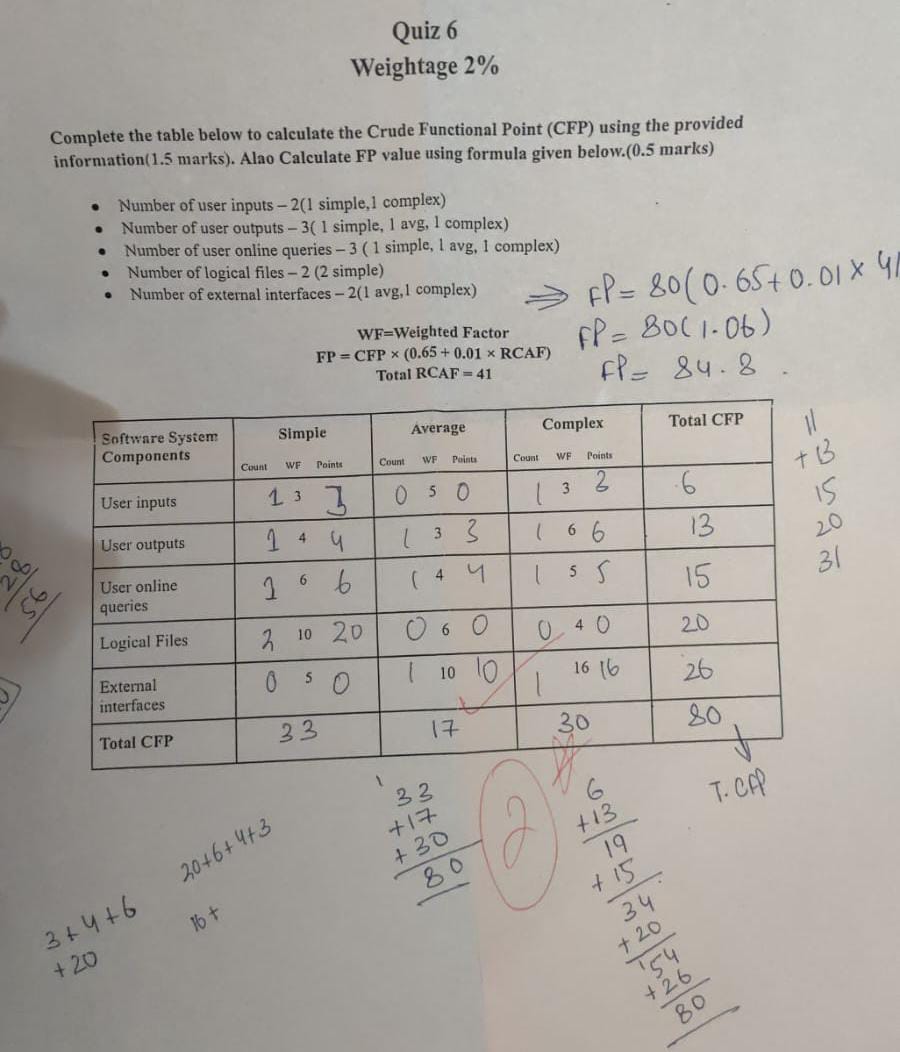 Quiz 6
Weightage 2%
Complete the table below to calculate the Crude Functional Point (CFP) using the provided
information(1.5 marks). Alao Calculate FP value using formula given below.(0.5 marks)
• Number of user inputs – 2(1 simple,1 complex)
• Number of user outputs – 3( 1 simple, 1 avg, 1 complex)
• Number of user online queries – 3 ( 1 simple, 1 avg, 1 complex)
• Number of logical files – 2 (2 simple)
• Number of external interfaces – 2(1 avg,1 complex)
⇒ FP = 80(0.65+0.01 × 41
FP = 80(1.06)
FP = 84.8.
WF=Weighted Factor
FP = CFP × (0.65 + 0.01 × RCAF)
Total RCAF = 41
Software System Components Simple Average Complex Total CFP
Count WF Points Count WF Points Count WF Points
User inputs 1 3 3 0 5 0 1 3 3 6
User outputs 1 4 4 1 3 3 1 6 6 13
User online queries 1 6 6 1 4 4 1 5 5 15
Logical Files 2 10 20 0 6 0 0 4 0 20
External interfaces 0 5 0 1 10 10 1 16 16 26
Total CFP 33 17 30 80
T. CFP
11
+13
15
20
31
28
56
33
+17
+30
80
2
6
+13
19
+15
34
+20
54
+26
80
20+6+4+3
16+
3+4+6
+20